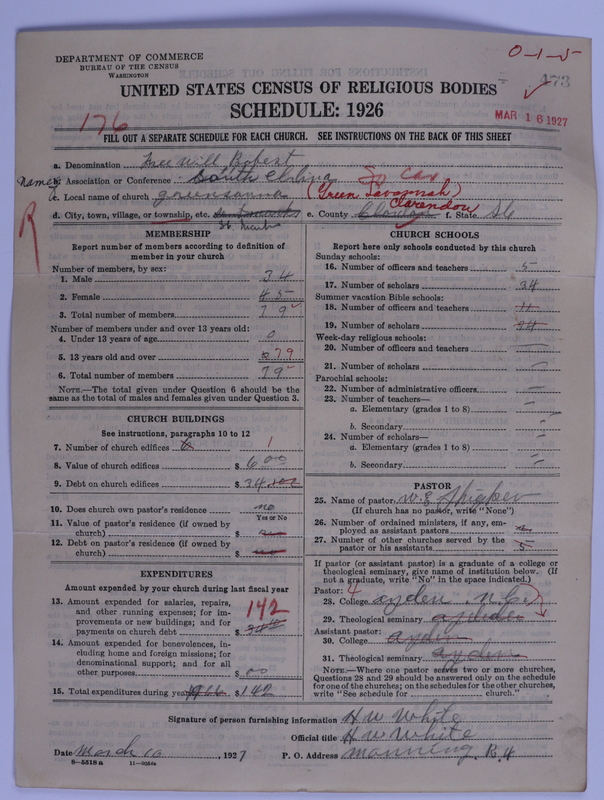 0-1-5
DEPARTMENT OF COMMERCE
BUREAU OF THE CENSUS
WASHINGTON
473
UNITED STATES CENSUS OF RELIGIOUS BODIES
SCHEDULE: 1926
MAR 16 1927
176
FILL OUT A SEPARATE SCHEDULE FOR EACH CHURCH. SEE INSTRUCTIONS ON THE BACK OF THIS SHEET
a. Denomination Free Will Bobest
Name b. Association or Conference South Clrlina So Car
c. Local name of church greensanna (Green Savannah)
R
d. City, town, village, or township, etc. e. County Clarendon f. State SC
MEMBERSHIP
Report number of members according to definition of
member in your church
Number of members, by sex:
1. Male 34
2. Female 45
3. Total number of members 79
Number of members under and over 13 years old:
4. Under 13 years of age 0
5. 13 years old and over 79
6. Total number of members 79
NOTE.—The total given under Question 6 should be
same as the total of males and females given under Question 3.
CHURCH BUILDINGS
See instructions, paragraphs 10 to 12
7. Number of church edifices 1
8. Value of church edifices $ 600
9. Debt on church edifices $ 34
10. Does church own pastor's residence no
Yes or No
11. Value of pastor's residence (if owned by
church) $
12. Debt on pastor's residence (if owned by
church) $ no
EXPENDITURES
Amount expended by your church during last fiscal year
13. Amount expended for salaries, repairs,
and other running expenses; for im-
provements or new buildings; and for
payments on church debt $ 142
14. Amount expended for benevolences, in-
cluding home and foreign missions; for
denominational support; and for all
other purposes $ 00
15. Total expenditures during year $ 142
CHURCH SCHOOLS
Report here only schools conducted by this church
Sunday schools:
16. Number of officers and teachers 5
17. Number of scholars 34
Summer vacation Bible schools:
18. Number of officers and teachers 11
19. Number of scholars 34
Week-day religious schools:
20. Number of officers and teachers —
21. Number of scholars —
Parochial schools:
22. Number of administrative officers —
23. Number of teachers—
a. Elementary (grades 1 to 8) —
b. Secondary
24. Number of scholars—
a. Elementary (grades 1 to 8)
b. Secondary
PASTOR
25. Name of pastor W. E
(If church has no pastor, write "None")
26. Number of ordained ministers, if any, em-
ployed as assistant pastors
27. Number of other churches served by the
pastor or his assistants 5
If pastor (or assistant pastor) is a graduate of a college or
theological seminary, give name of institution below. (If
not a graduate, write "No" in the space indicated.)
Pastor: 4
28. College ayden N.C.
29. Theological seminary ayden
Assistant pastor:
30. College ayden
31. Theological seminary ayden
NOTE.—Where one pastor serves two or more churches,
Questions 28 and 29 should be answered only on the schedule
for one of the churches; on the schedules for the other churches,
write "See schedule for church."
Signature of person furnishing information H W White
Official title H W White
Date March 10, 1927 P. O. Address manning R.4
8—5518a 11—9054a